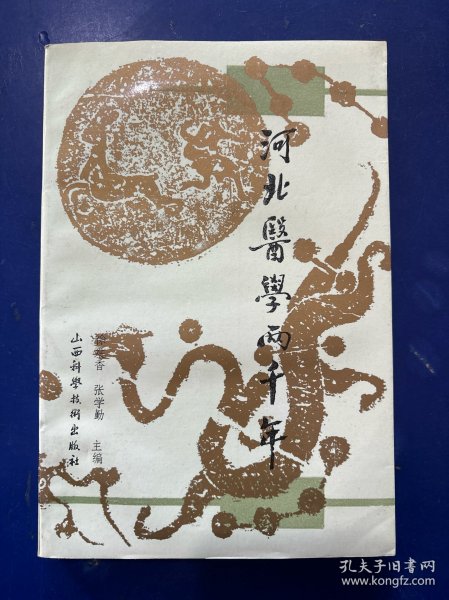 河北醫學两千年
香 张学勤 主编
山西科學技術出版社
孔夫子旧书网
www.kongfz.com